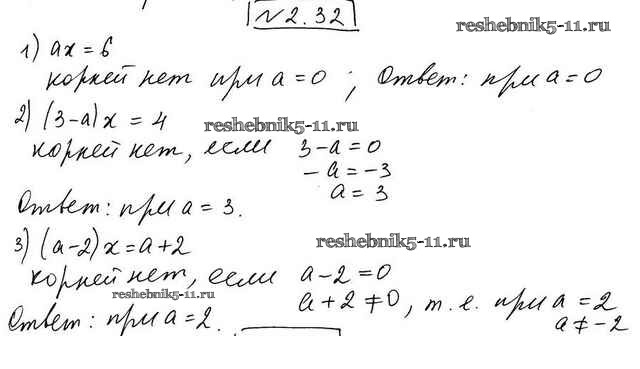 №2.32
reshebnik5-11.ru
1) ax = 6
корней нет при a = 0 ; Ответ: при a = 0
2) (3-a)x = 4
reshebnik5-11.ru
корней нет, если 3-a=0
-a=-3
a = 3
Ответ: при a = 3.
3) (a-2)x = a+2
reshebnik5-11.ru
корней нет, если a-2=0
reshebnik5-11.ru
a+2≠0, т.е. при a = 2
a≠-2
Ответ: при a = 2.